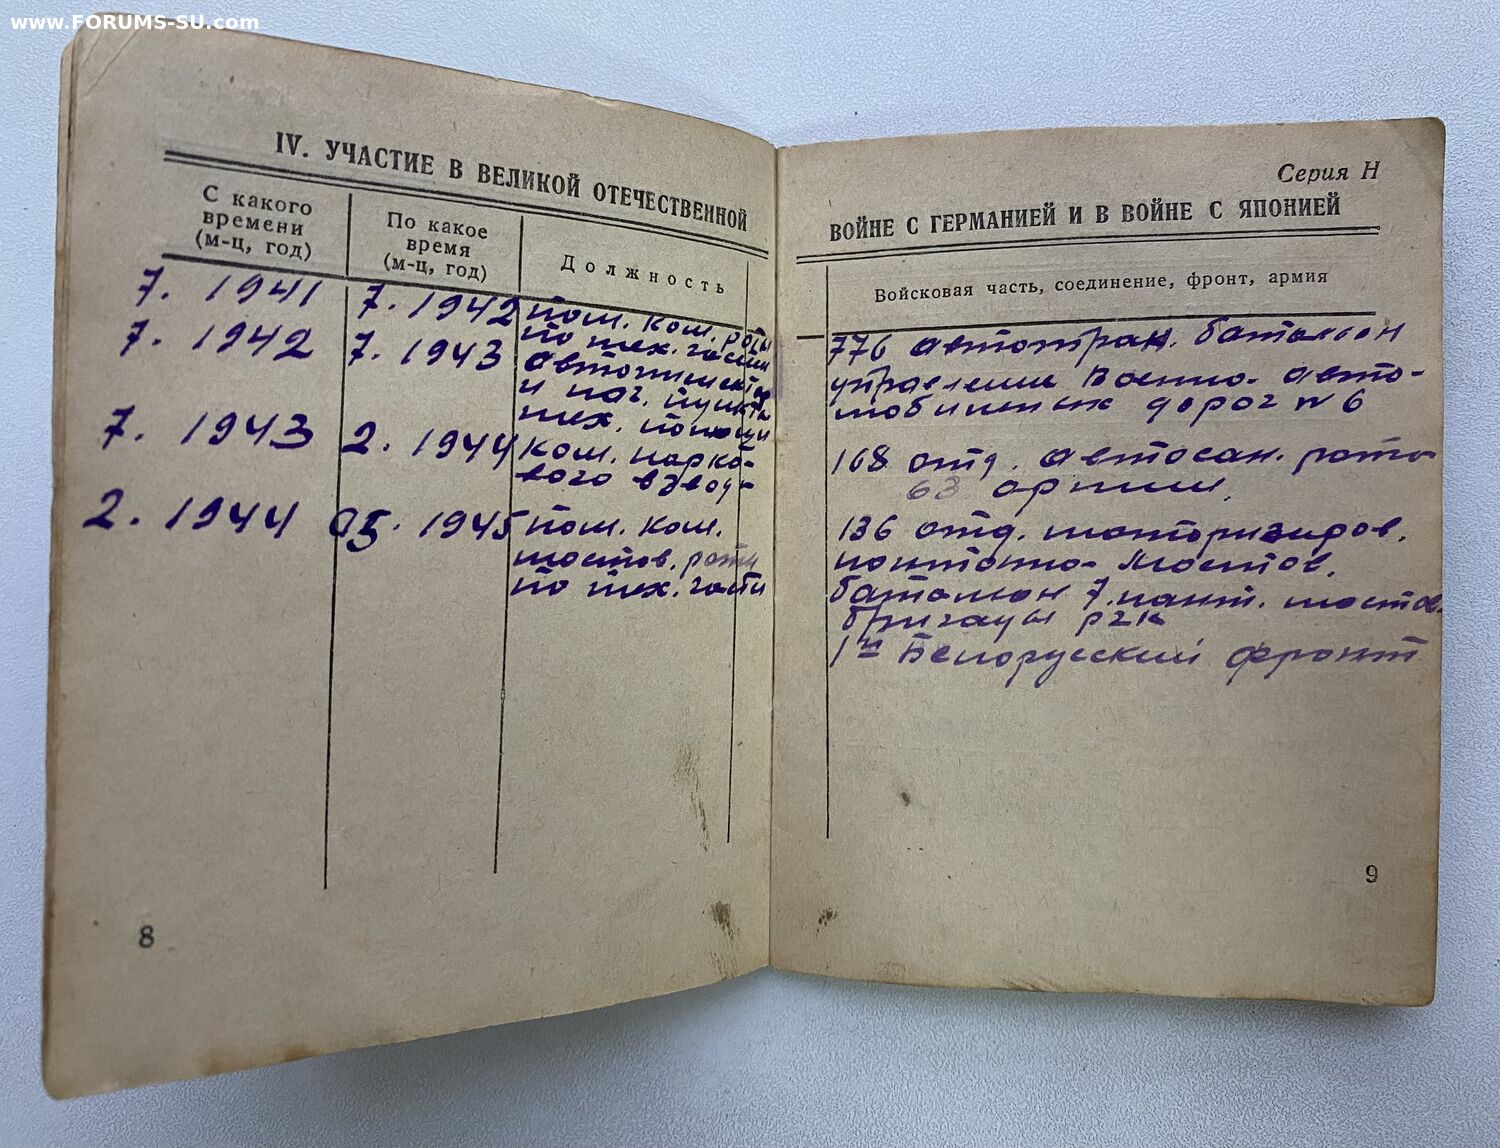 www.FORUMS-SU.com
IV. УЧАСТИЕ В ВЕЛИКОЙ ОТЕЧЕСТВЕННОЙ
С какого
времени
(м-ц, год)
По какое
время
(м-ц, год)
Должность
7. 1941 7. 1942 пом. ком. роты
по тех. части
7. 1942 7. 1943 автотехник
и нач. пункта
тех. помощи
7. 1943 2. 1944 ком. парко-
вого взвода
2. 1944 05. 1945 пом. ком.
мостов. роты
по тех. части
8
Серия Н
ВОЙНЕ С ГЕРМАНИЕЙ И В ВОЙНЕ С ЯПОНИЕЙ
Войсковая часть, соединение, фронт, армия
776 автотран. батальон
управление Военно-авто-
мобильных дорог № 6
168 отд. автосан. рота
63 армии.
136 отд. моторизиров.
понтонно-мостов.
батальон 7. понт. мостов.
бригады РГК
1й Белорусский фронт
9